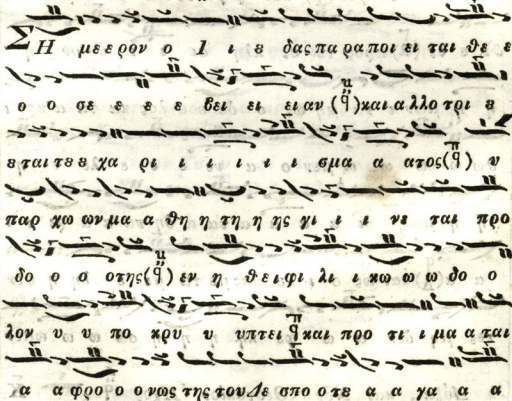 ΣΗ με ε ρον ο Ι ι ε δας πα ρα ποι ει ται θε ε
ο ο σε ε ε ε βει ει ει αν (q̈) και α λλο τρι ε
ε ται τε ε χα ρι ι ι ι ι ι σμα α ατος (q̈) υ
παρ χω ων μα α θη η τη η ης γι ι ι νε ται προ
δο ο ο οτης (q̈) εν η θει φι λι ι κω ω ω δο ο
λον υ υ πο κρυ υ υπτει q̈ και προ τι ι μα α ται
α α φρο ο ο νως της του Δε σπο ο τε α α γα α α